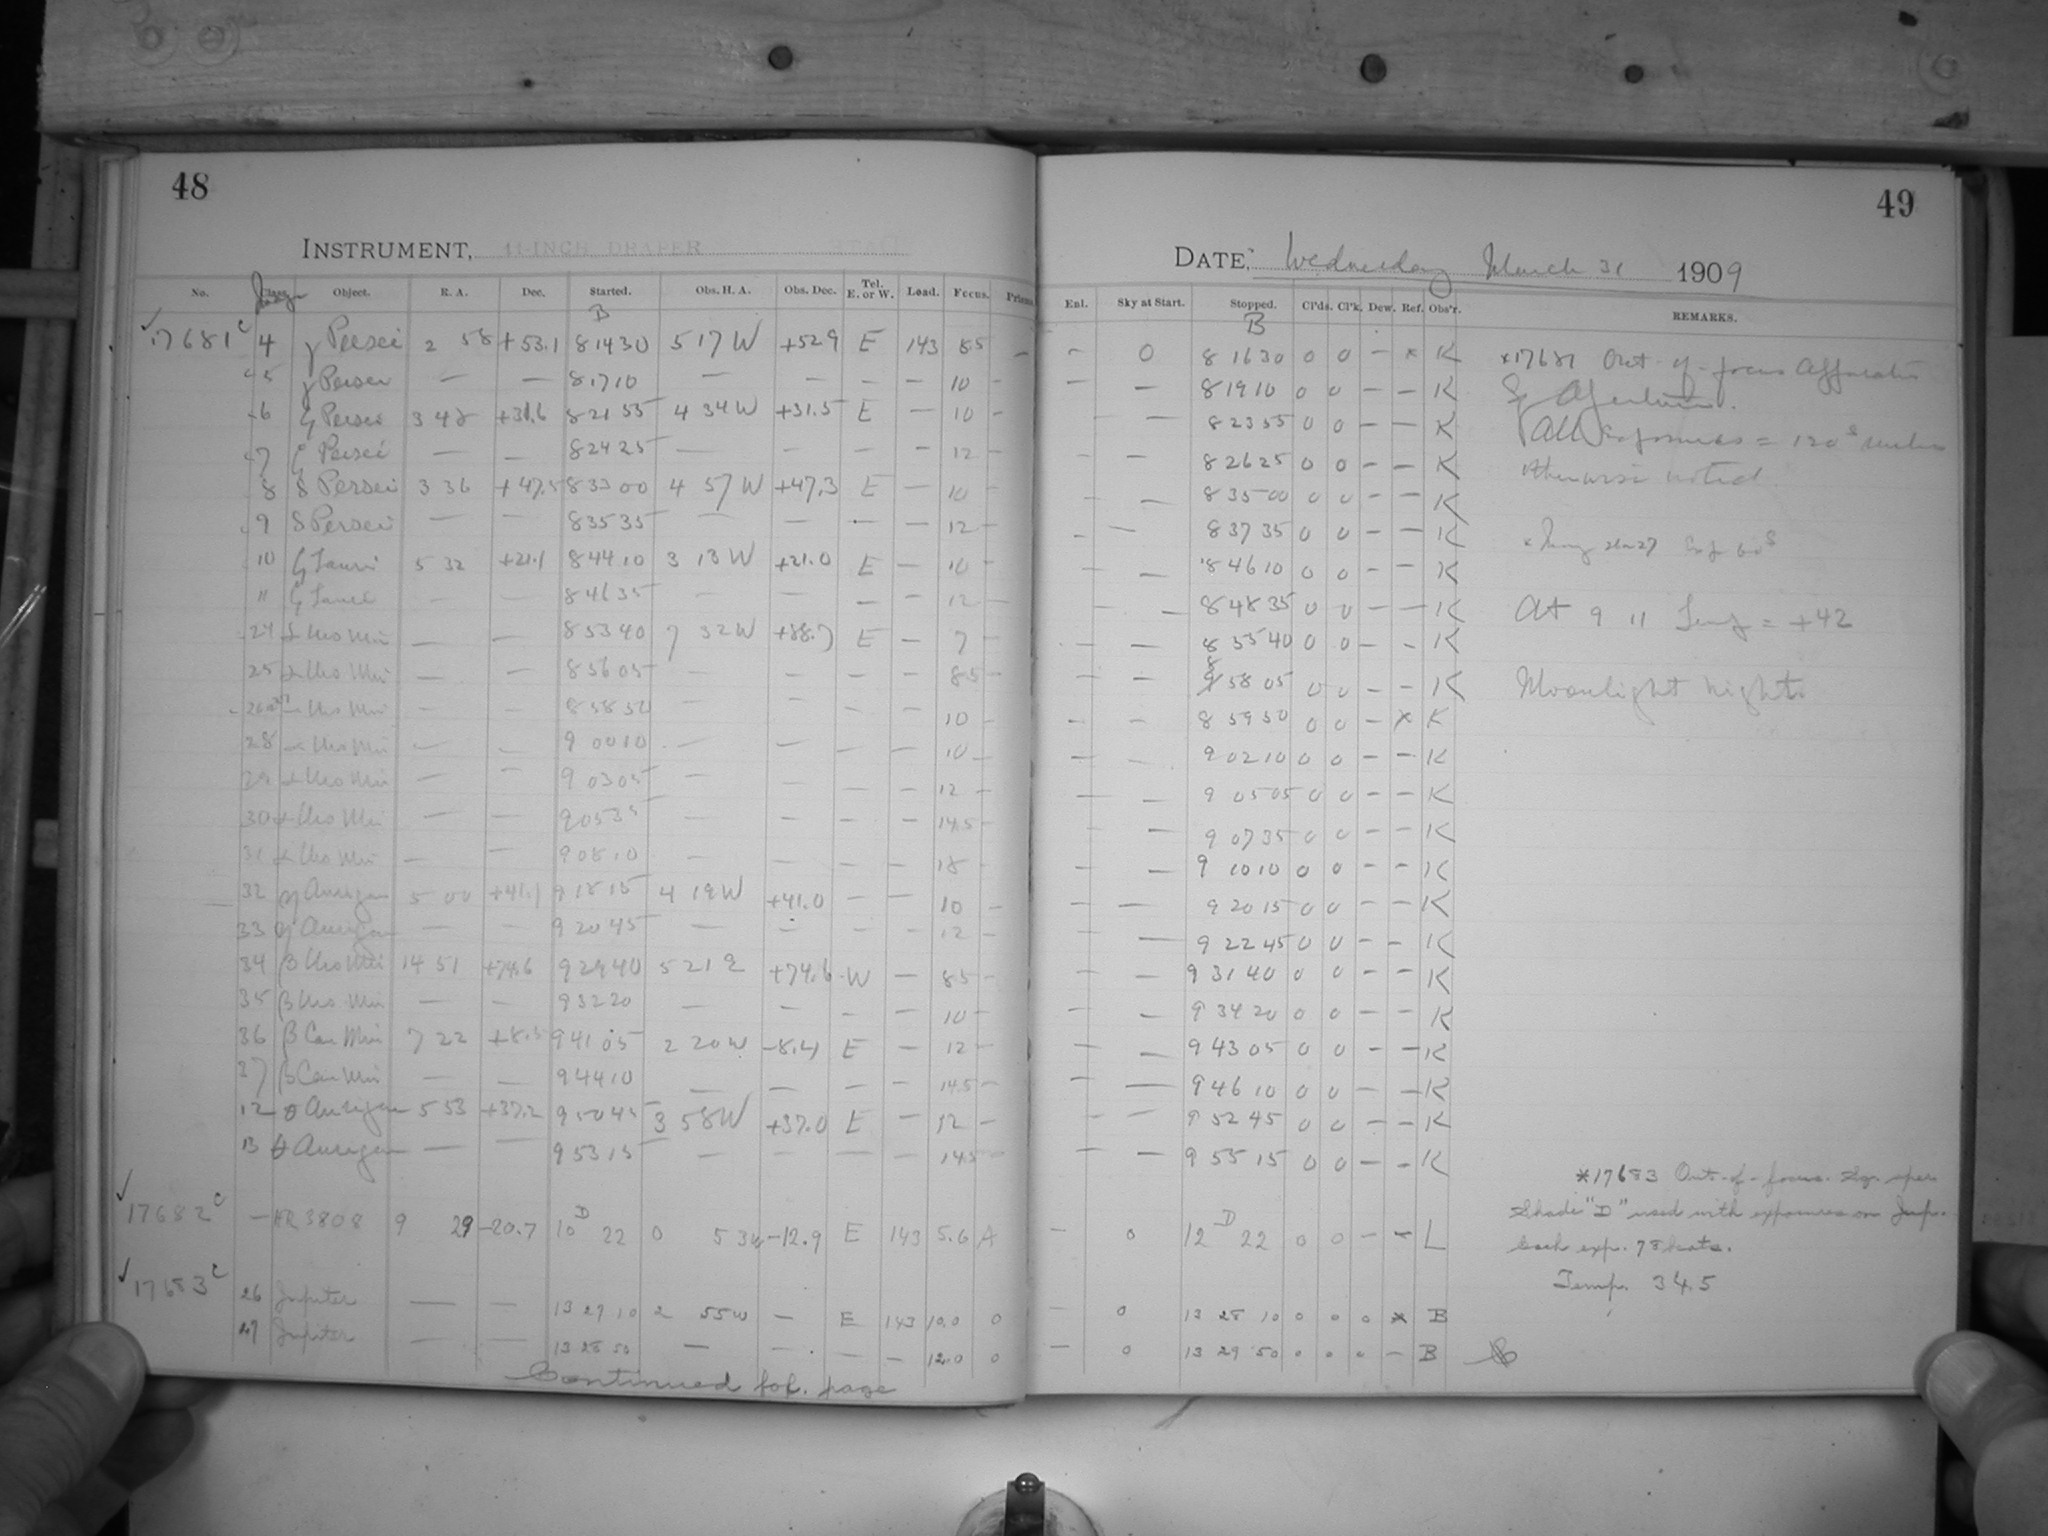 48
INSTRUMENT, 11-INCH DRAPER
No. Class. Object. R. A. Dec. Started. Obs. H. A. Obs. Dec. Tel. E. or W. Load. Focus. Prisms
B
✓ 17681 c 4 γ Persei 2 58 +53.1 8 14 30 5 17 W +52.9 E 143 8.5 –
5 γ Persei — — 8 17 10 — – – – 10 –
6 ζ Persei 3 48 +31.6 8 21 55 4 34 W +31.5 E – 10 –
7 ζ Persei — – 8 24 25 — – – – 12 –
8 δ Persei 3 36 +47.5 8 33 00 4 57 W +47.3 E – 10 –
9 δ Persei — – 8 35 35 — – – – 12 –
10 ζ Tauri 5 32 +21.1 8 44 10 3 13 W +21.0 E – 10 –
11 ζ Tauri – – 8 46 35 – – – – 12 –
24 α Urs Min — – 8 53 40 7 32 W +88.7 E – 7 –
25 α Urs Min — – 8 56 05 – – – – 8.5 –
α Urs Min – – 8 58 50 – – – – 10 –
28 α Urs Min – – 9 00 10 – – – – 10 –
29 α Urs Min – – 9 03 05 – – – – 12 –
30 α Urs Min – – 9 05 35 – – – – 14.5 –
31 α Urs Min – – 9 08 10 – – – – 18 –
32 η Aurigae 5 00 +41.1 9 18 15 4 19 W +41.0 – – 10 –
33 η Aurigae – – 9 20 45 – – – – 12 –
34 β Urs Min 14 51 +74.6 9 29 40 5 21 E +74.6 W – 8.5 –
35 β Urs Min – – 9 32 20 – – – – 10 –
36 β Can Min 7 22 +8.5 9 41 05 2 20 W –8.4 E – 12 –
37 β Can Min – – 9 44 10 – – – – 14.5 –
12 θ Aurigae 5 53 +37.2 9 50 45 3 58 W +37.0 E – 12 –
13 θ Aurigae – – 9 53 15 – – – – 14.5 –
✓ 17682 c – HR 3808 9 29 –20.7 10 D 22 0 53 W –12.9 E 143 5.6 A
✓ 17683 c 26 Jupiter — – 13 27 10 2 55 W – E 143 10.0 0
27 Jupiter – – 13 28 50 – – – – 12.0 0
Continued fol. page
49
DATE, Wednesday March 31 1909
Enl. Sky at Start. Stopped. Cl'ds. Cl'k. Dew. Ref. Obs'r. REMARKS.
B
– 0 8 16 30 0 0 – * K *17681 Out-of-focus
– – 8 19 10 0 0 – – K
– – 8 23 55 0 0 – – K All Exposures = 120s unless
– – 8 26 25 0 0 – – K otherwise noted.
– – 8 35 00 0 0 – – K
– – 8 37 35 0 0 – – K
– – 8 46 10 0 0 – – K
– – 8 48 35 0 0 – – K At 9 11 Temp = +42
– – 8 55 40 0 0 – – K
– – 8 58 05 0 0 – – K Moonlight night.
– – 8 59 50 0 0 – × K
– – 9 02 10 0 0 – – K
– – 9 05 05 0 0 – – K
– – 9 07 35 0 0 – – K
– – 9 10 10 0 0 – – K
– – 9 20 15 0 0 – – K
– – 9 22 45 0 0 – – K
– – 9 31 40 0 0 – – K
– – 9 34 20 0 0 – – K
– – 9 43 05 0 0 – – K
– – 9 46 10 0 0 – – K
– – 9 52 45 0 0 – – K
– – 9 55 15 0 0 – – K
*17683 Out-of-focus.
– 0 12 D 22 0 0 – – L Shade "D" used with exposures on Jup.
Each exp. 78 beats.
Temp. 34.5
– 0 13 28 10 0 0 0 * B
– 0 13 29 50 0 0 0 – B